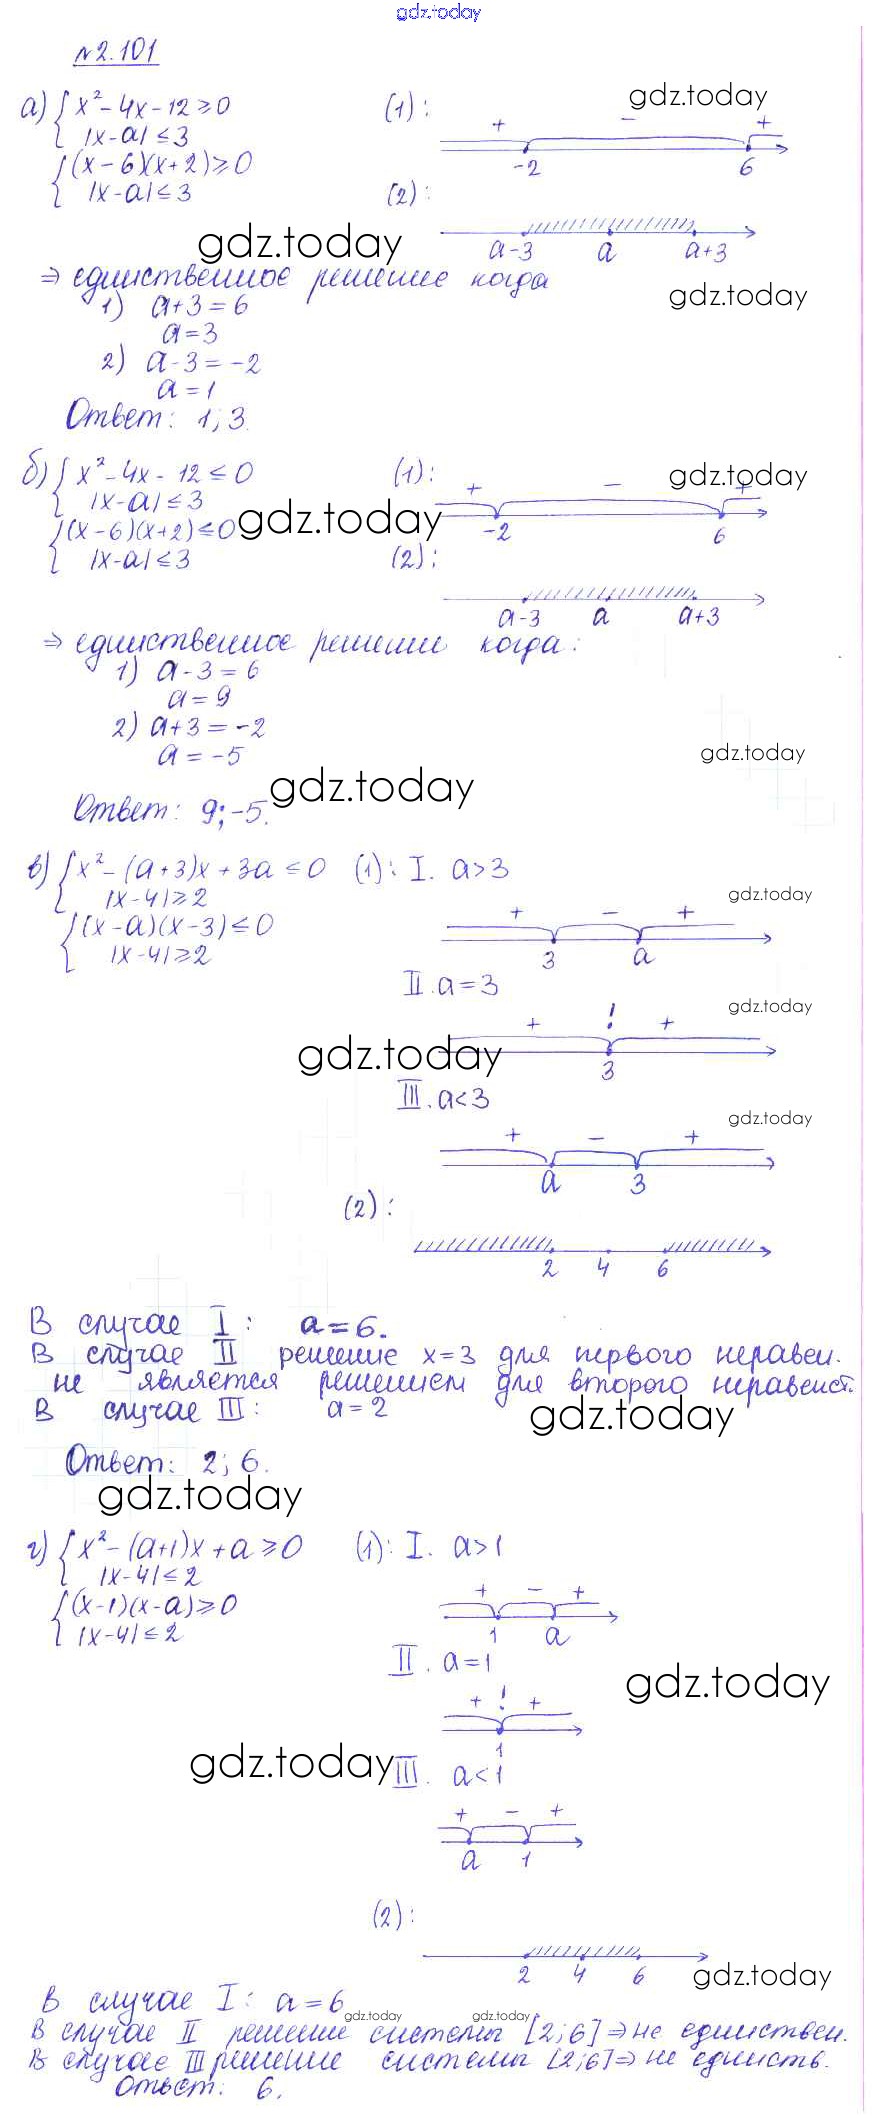 gdz.today
№2.101
а) { x² - 4x - 12 ≥ 0
|x-a| ≤ 3
{ (x-6)(x+2) ≥ 0
|x-a| ≤ 3
(1):
gdz.today
+ - +
-2 6
(2):
a-3 a a+3
gdz.today
⇒ единственное решение когда
gdz.today
1) a+3=6
a=3
2) a-3=-2
a=1
Ответ: 1; 3.
б) { x² - 4x - 12 ≤ 0
|x-a| ≤ 3
{ (x-6)(x+2) ≤ 0
|x-a| ≤ 3
gdz.today
(1):
gdz.today
+ - +
-2 6
(2):
a-3 a a+3
⇒ единственное решение когда:
1) a-3=6
a=9
2) a+3=-2
a=-5
gdz.today
gdz.today
Ответ: 9; -5.
в) { x² - (a+3)x + 3a ≤ 0
|x-4| ≥ 2
{ (x-a)(x-3) ≤ 0
|x-4| ≥ 2
(1): I. a>3
gdz.today
+ - +
3 a
II. a=3
gdz.today
+ ! +
3
gdz.today
III. a<3
gdz.today
+ - +
a 3
(2):
2 4 6
В случае I: a=6.
В случае II решение x=3 для первого неравен.
не является решением для второго неравенст.
В случае III: a=2
gdz.today
Ответ: 2; 6.
gdz.today
г) { x² - (a+1)x + a ≥ 0
|x-4| ≤ 2
{ (x-1)(x-a) ≥ 0
|x-4| ≤ 2
(1): I. a>1
+ - +
1 a
II. a=1
gdz.today
+ ! +
1
gdz.today
III. a<1
+ - +
a 1
(2):
2 4 6
gdz.today
В случае I: a=6
gdz.today gdz.today
В случае II решение системы [2;6] ⇒ не единствен.
В случае III решение системы [2;6] ⇒ не единств.
Ответ: 6.